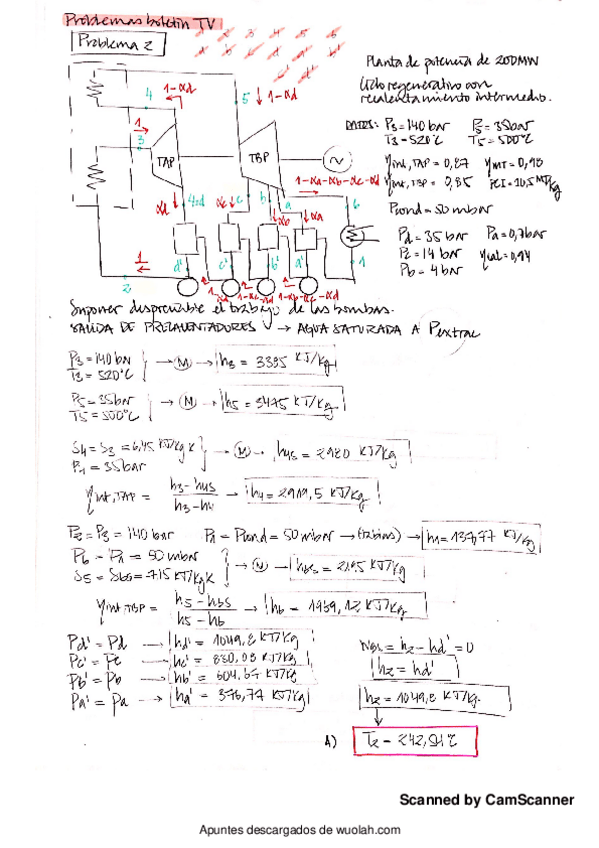 Problemas boletín TV
Problema 2
Planta de potencia de 200MW
Ciclo regenerativo con
recalentamiento intermedio.
DATOS: P3 = 140 bar P5 = 35 bar
T3 = 520°C T5 = 500°C
ηint,TAP = 0,87 ηmt = 0,98
ηint,TBP = 0,85 PCI = 16,5 MJ/kg
Pcond = 50 mbar
Pd = 35 bar Pa = 0,7 bar
Pc = 14 bar ηcal = 0,94
Pb = 4 bar
4 1-αd 5 1-αd
1
3 TAP TBP
1-αa-αb-αc-αd
αd 4=d αc c b a αb αa 6
d' c' b' a' 1
1
2 1-αd 1-αc-αd 1-αb-αc-αd
Suponer despreciable el trabajo de las bombas.
SALIDA DE PRECALENTADORES → AGUA SATURADA A Pextrac
P3 = 140 bar
T3 = 520°C → M → h3 = 3395 KJ/kg
P5 = 35 bar
T5 = 500°C → M → h5 = 3475 KJ/kg
S4 = S3 = 6,45 KJ/kg K
P4 = 35 bar → M → h4s = 2920 KJ/kg
ηint,TAP = h3 - h4s / h3 - h4 → h4 = 2919,5 KJ/kg
P2 = P3 = 140 bar P1 = Pcond = 50 mbar → (tablas) → h1 = 137,77 KJ/kg
P6 = P1 = 50 mbar
S5 = S6s = 7,15 KJ/kgK → M → h6s = 2195 KJ/kg
ηint TBP = h5 - h6s / h5 - h6 → h6 = 1959,12 KJ/kg
Pd' = Pd → hd' = 1049,8 KJ/kg
Pc' = Pc → hc' = 830,08 KJ/kg
Pb' = Pb → hb' = 604,67 KJ/kg
Pa' = Pa → ha' = 376,77 KJ/kg
= h2 - hd' = 0
h2 = hd'
h2 = 1049,8 KJ/kg
A) T2 = 242,54°C
Scanned by CamScanner
Apuntes descargados de wuolah.com